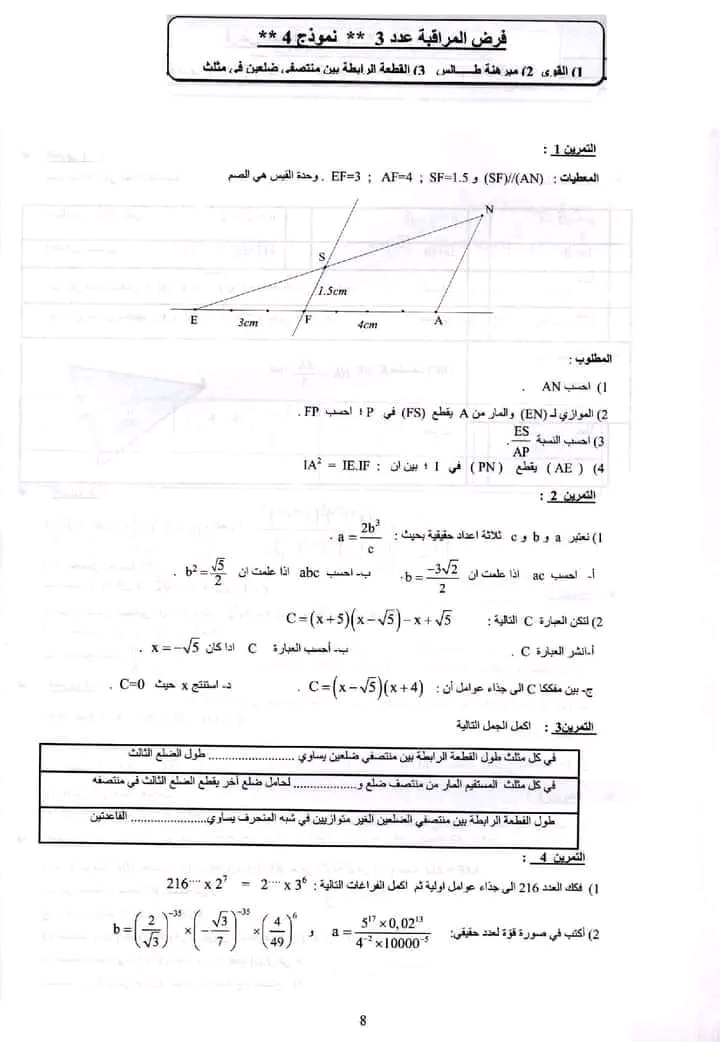 فرض المراقبة عدد 3 ** نموذج 4 **
1) القوى 2) مبرهنة طـــالس 3) القطعة الرابطة بين منتصفي ضلعين في مثلث
التمرين 1 :
المعطيات : (SF)//(AN) و SF=1.5 ; AF=4 ; EF=3 . وحدة القيس هي الصم
N
S
1.5cm
E 3cm F 4cm A
المطلوب :
1) احسب AN .
2) الموازي لـ (EN) والمار من A يقطع (FS) في P ؛ احسب FP .
3) احسب النسبة ES/AP .
4) ( AE ) يقطع ( PN ) في I ؛ بين ان : IA² = IE.IF
التمرين 2 :
1) نعتبر a و b و c ثلاثة اعداد حقيقية بحيث : a = 2b³/c .
أ- احسب ac اذا علمت ان b = -3√2/2 . ب- احسب abc اذا علمت ان b² = √5/2 .
2) لتكن العبارة C التالية : C=(x+5)(x-√5)-x+√5
أ-انشر العبارة C . ب- أحسب العبارة C اذا كان x=-√5 .
ج- بين مفككا C الى جذاء عوامل أن : C=(x-√5)(x+4) . د- استنتج x حيث C=0 .
التمرين3 : اكمل الجمل التالية
في كل مثلث طول القطعة الرابطة بين منتصفي ضلعين يساوي ........................ طول الضلع الثالث
في كل مثلث المستقيم المار من منتصف ضلع و.................. لحامل ضلع آخر يقطع الضلع الثالث في منتصفه
طول القطعة الرابطة بين منتصفي الضلعين الغير متوازيين في شبه المنحرف يساوي..................... القاعدتين
التمرين 4 :
1) فكك العدد 216 الى جذاء عوامل اولية ثم اكمل الفراغات التالية : 216^.... x 2⁷ = 2^.... x 3⁶
2) أكتب في صورة قوة لعدد حقيقي: a = (5¹⁷×0,02¹³)/(4⁻²×10000⁻⁵) و b = (2/√3)⁻³⁵×(-√3/7)⁻³⁵×(4/49)⁶
8